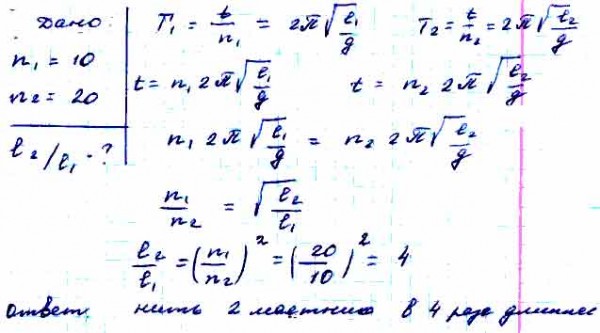 Дано:
n₁ = 10
n₂ = 20
l₂/l₁ - ?
T₁ = t/n₁ = 2π√(l₁/g)
T₂ = t/n₂ = 2π√(l₂/g)
t = n₁ 2π√(l₁/g)
t = n₂ 2π√(l₂/g)
n₁ 2π√(l₁/g) = n₂ 2π√(l₂/g)
n₁/n₂ = √(l₂/l₁)
l₂/l₁ = (n₁/n₂)² = (20/10)² = 4
ответ нить 2 маятника в 4 раза длиннее